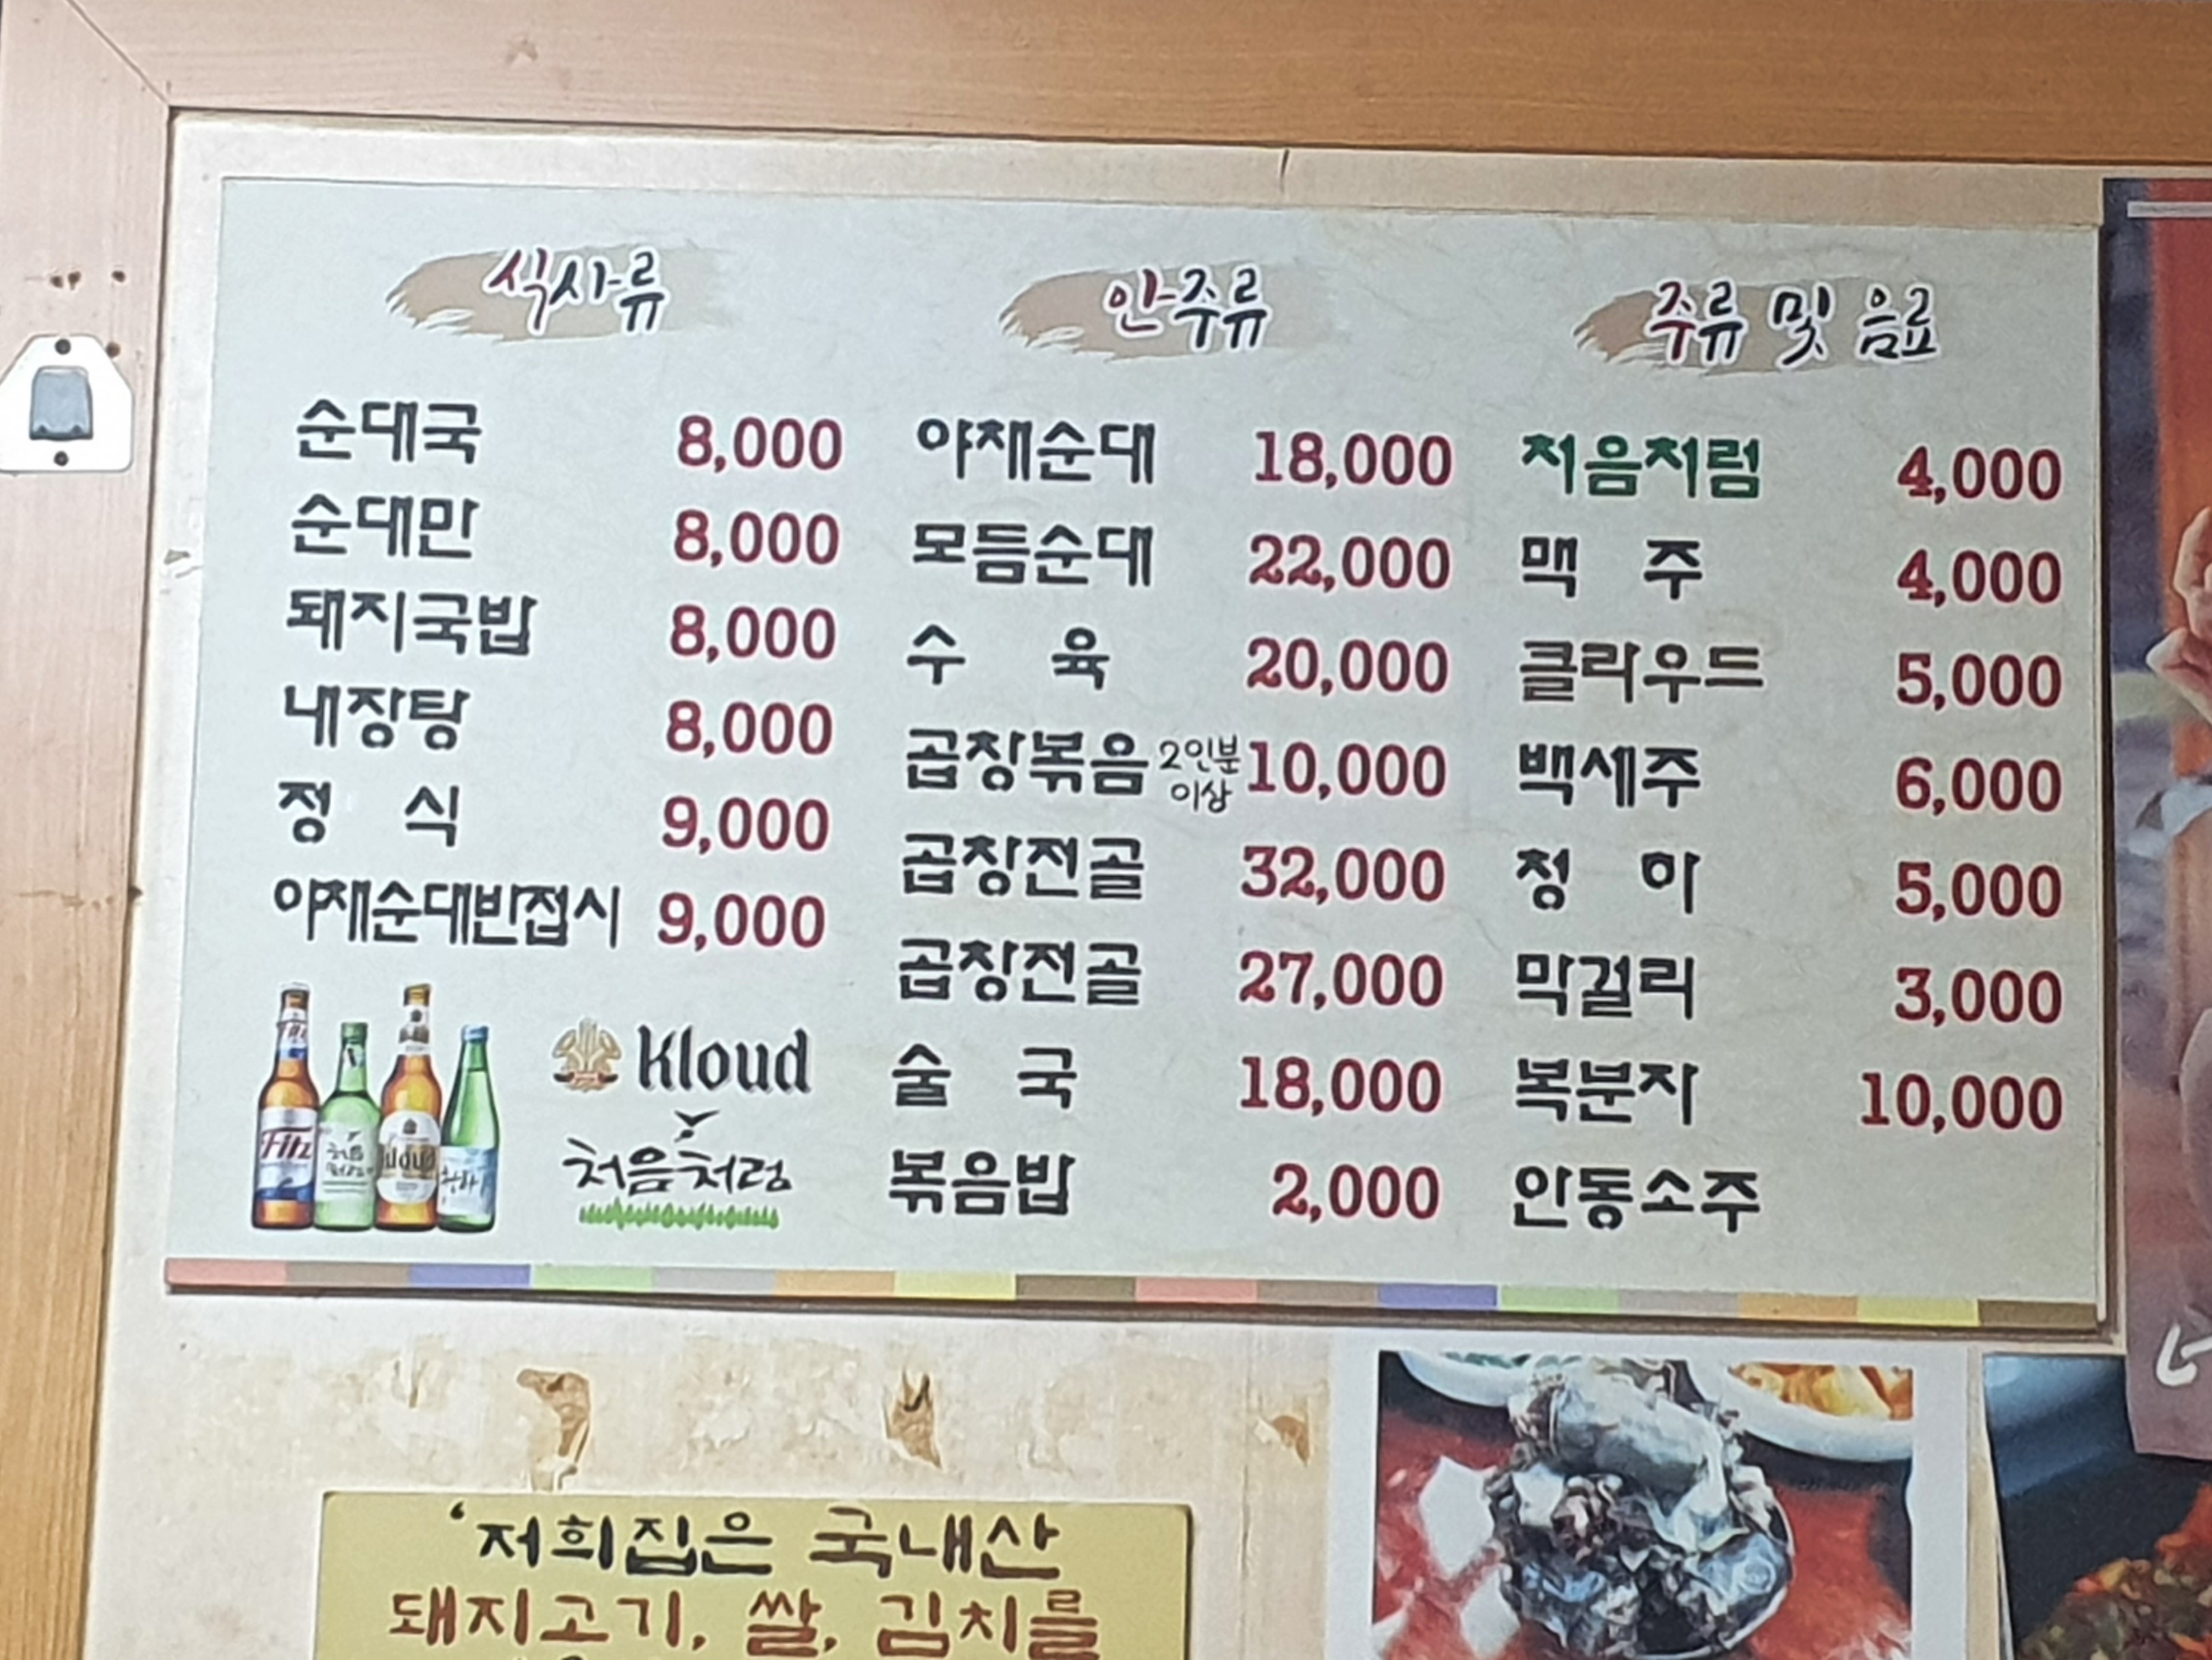 식사류
순대국 8,000
순대만 8,000
돼지국밥 8,000
내장탕 8,000
정 식 9,000
야채순대반접시 9,000
안주류
야채순대 18,000
모듬순대 22,000
수 육 20,000
곱창볶음 2인분 이상 10,000
곱창전골 32,000
곱창전골 27,000
술 국 18,000
볶음밥 2,000
주류 및 음료
처음처럼 4,000
맥 주 4,000
클라우드 5,000
백세주 6,000
청 하 5,000
막걸리 3,000
복분자 10,000
안동소주
Kloud
처음처럼
Fitz
처음
처럼
Kloud
청하
'저희집은 국내산
돼지고기, 쌀, 김치를